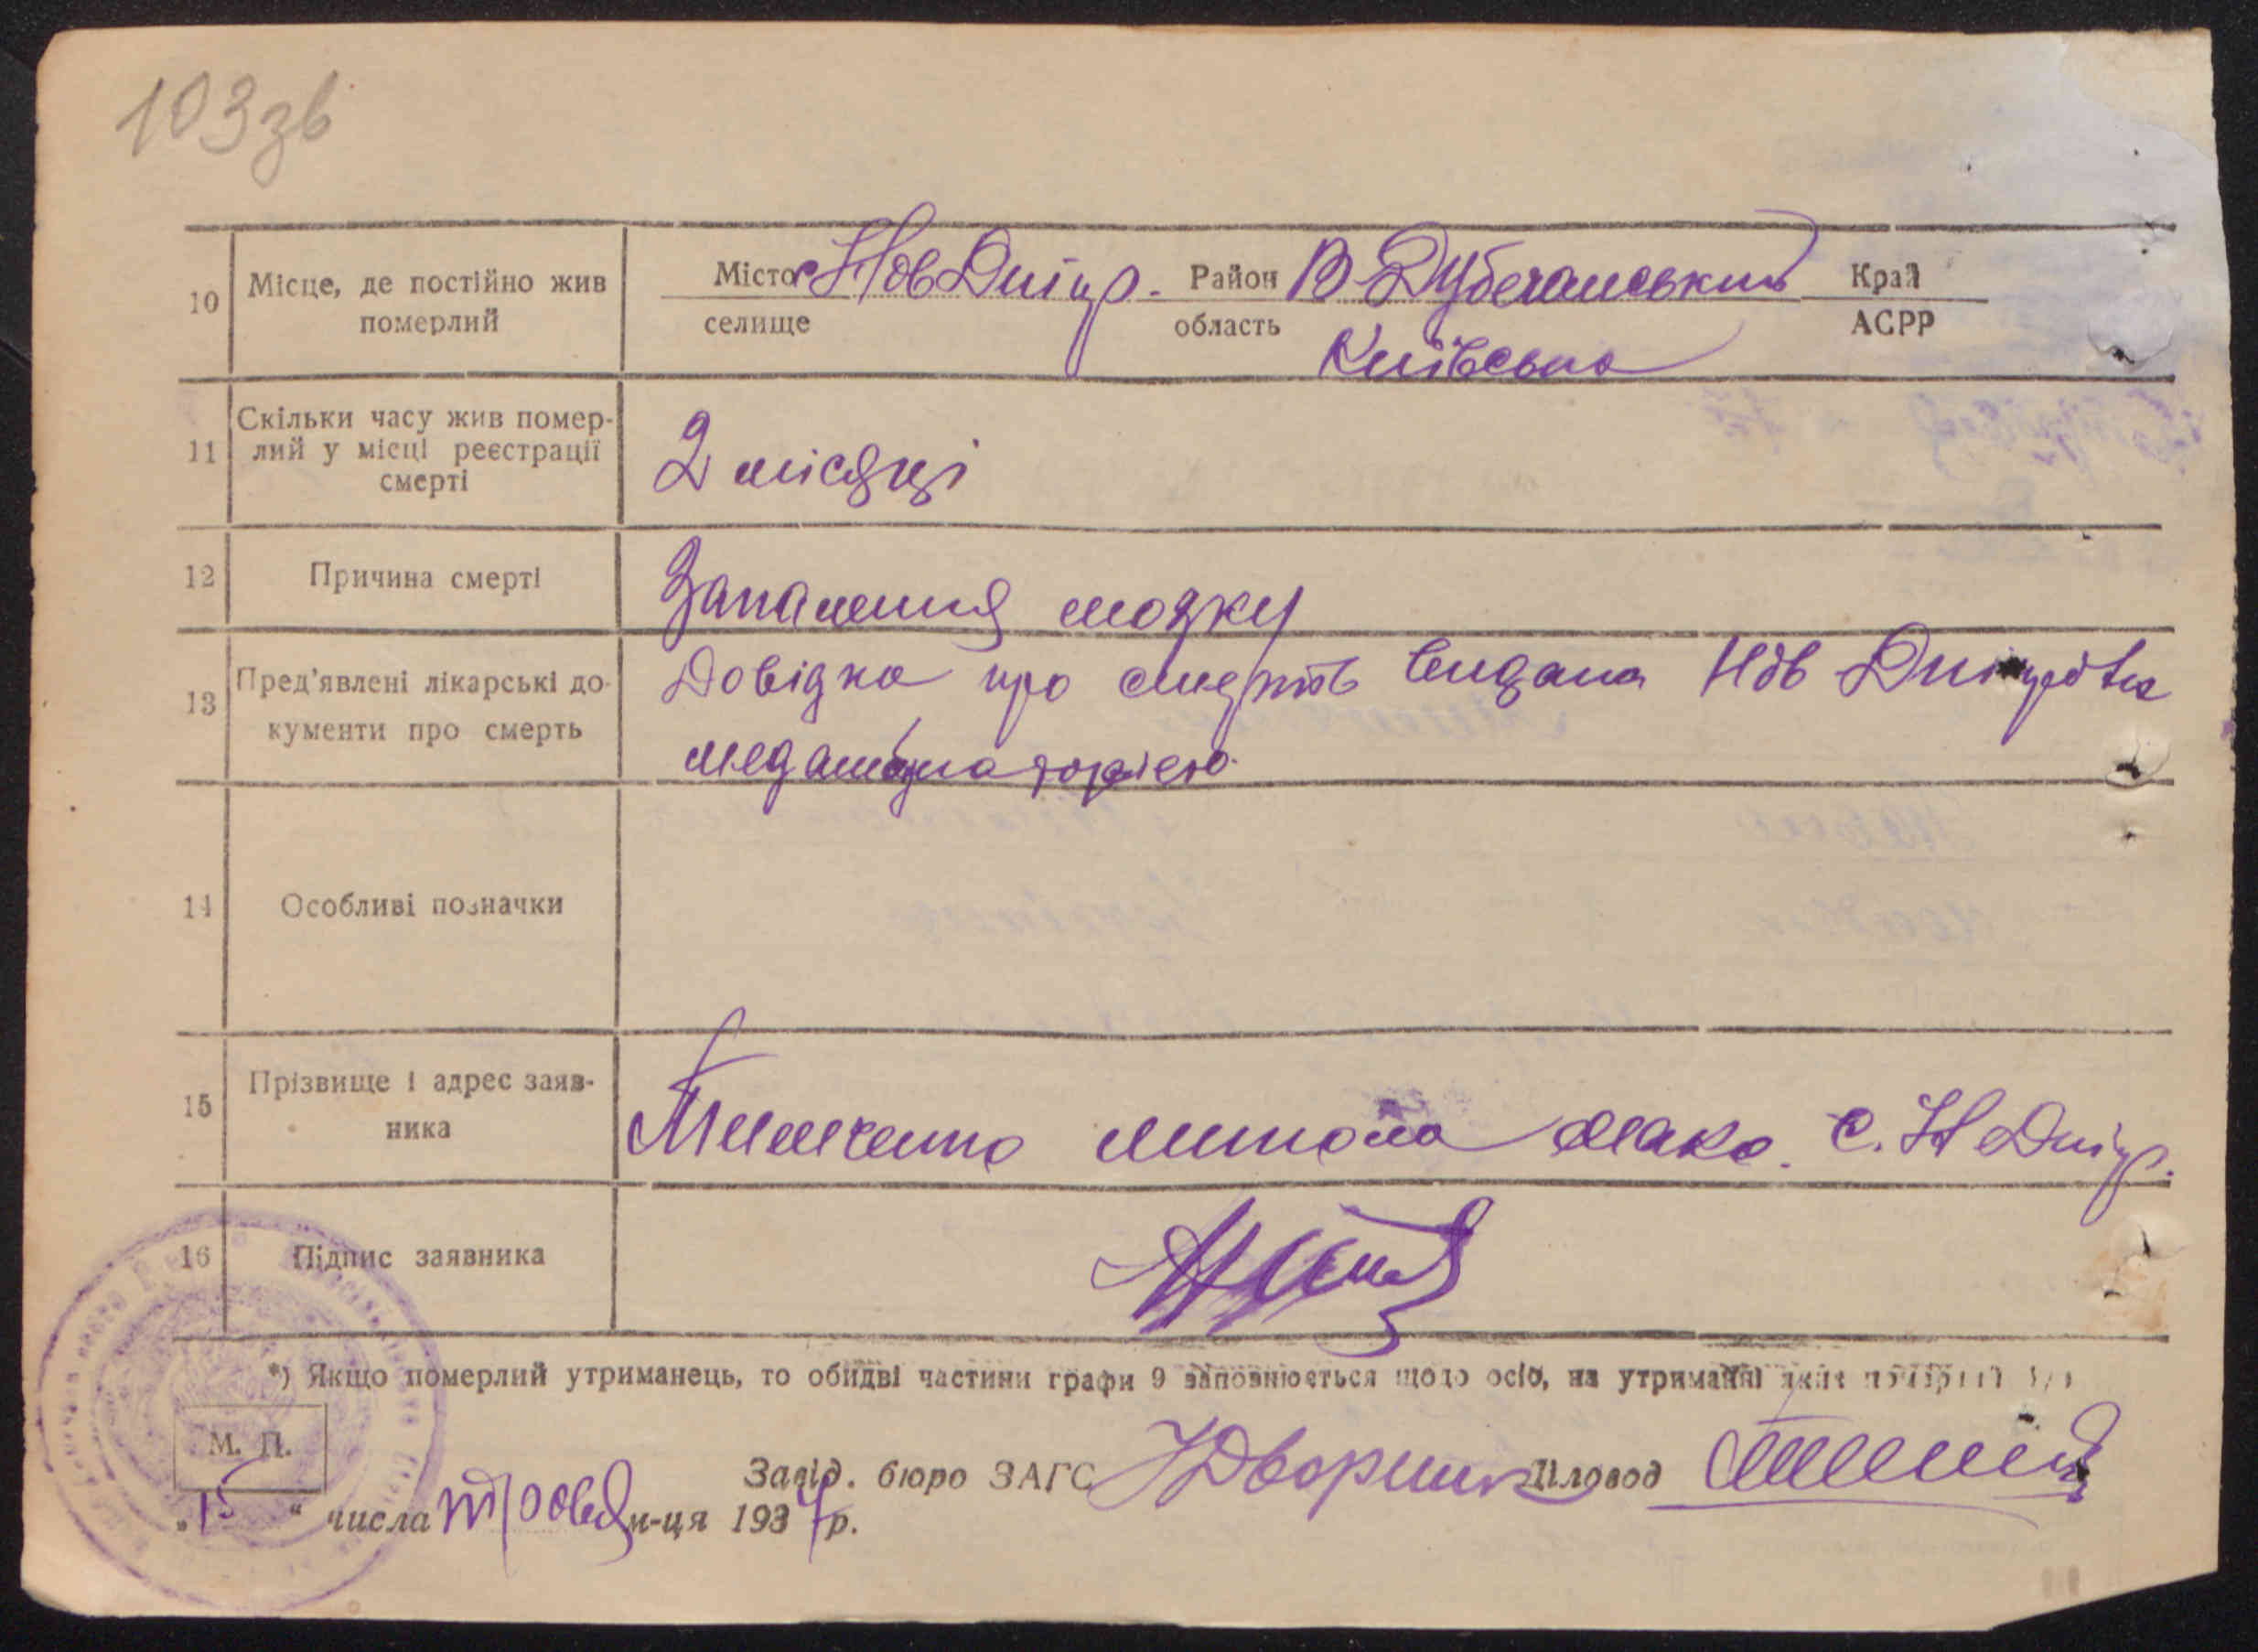 103 зв
10 Місце, де постійно жив померлий
Місто с Нов Дніпр. Район В-Дубечанський Край
селище область Київська АСРР
11 Скільки часу жив помер-
лий у місці реєстрації
смерті
2 місяці
12 Причина смерті
Запалення мозку
13 Пред'явлені лікарські до-
кументи про смерть
Довідка про смерть видана Нов Дніпровск
медамбулаторією.
14 Особливі позначки
15 Прізвище і адрес заяв-
ника
Тимченко Микола Мако. с. Н Дніпр.
16 Підпис заявника
*) Якщо померлий утриманець, то обидві частини графи 9 заповнюється щодо осіб, на утриманні яких померлий
М. П.
Завід. бюро ЗАГС НДворник Діловод
„15“ числа травня м-ця 1937 р.